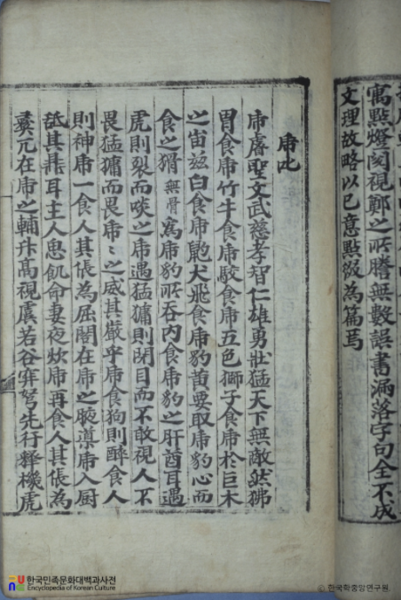 寓點燈閱視鄭之所謄無數誤書漏落字句全不成
文理故略以已意點綴為篇焉
虎叱
虎睿聖文武慈孝智仁雄勇壯猛天下無敵然狒
胃食虎竹牛食虎駮食虎五色獅子食虎於巨木
之岫玆白食虎䶂犬飛食虎豹黃要取虎豹心而
食之猾無骨為虎豹所吞內食虎豹之肝酋耳遇
虎則裂而啖之虎遇猛㺎則閉目而不敢視人不
畏猛㺎而畏虎〻之威其嚴乎虎食狗則醉食人
則神虎一食人其倀為屈閣在虎之腋導虎入厨
舐其鼎耳主人思飢命妻夜炊虎再食人其倀為
彛兀在虎之輔升高視虞若谷穽弩先行釋機虎
한국민족문화대백과사전
Encyclopedia of Korean Culture
© 한국학중앙연구원